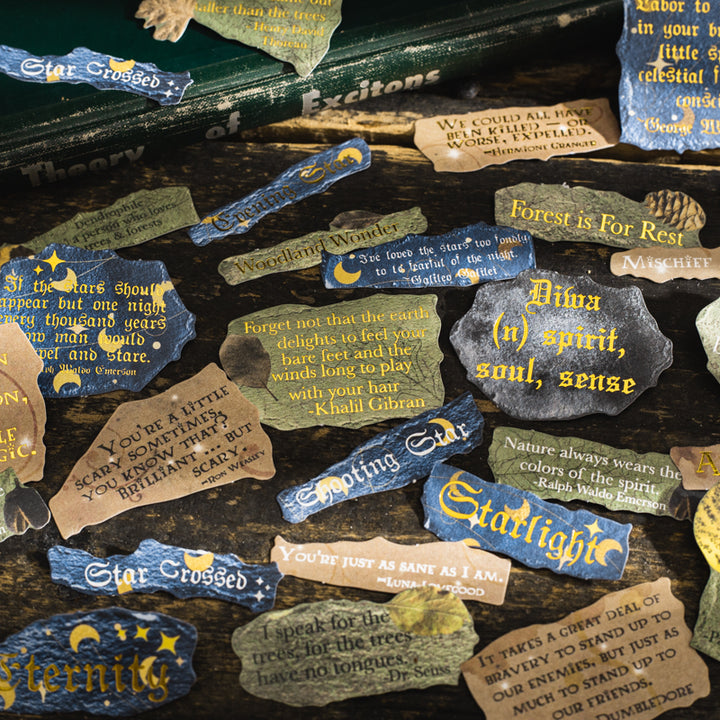 taller than the trees
-Henry David
Thoreau
Star Crossed
Theory of Excitons
Labor to
in your br
little s
celestial f
consci
-George W
We could all have
been killed — or
worse, expelled.
-Hermione Granger
Dendrophile
a person who loves
trees & forests
Evening Star
Woodland Wonder
I've loved the stars too fondly
to be fearful of the night.
-Galileo Galilei
Forest is For Rest
Mischief
If the stars should
appear but one night
every thousand years
how man would
and stare.
Waldo Emerson
Forget not that the earth
delights to feel your
bare feet and the
winds long to play
with your hair
-Khalil Gibran
Diwa
(n) spirit,
soul, sense
You're a little
scary sometimes,
you know that?
Brilliant ... but
scary.
-Ron Weasley
Shooting Star
Nature always wears the
colors of the spirit.
-Ralph Waldo Emerson
Starlight
Star Crossed
You're just as sane as I am.
-Luna Lovegood
Eternity
I speak for the
trees, for the trees
have no tongues.
-Dr. Seuss
It takes a great deal of
bravery to stand up to
our enemies, but just as
much to stand up to
our friends.
Dumbledore